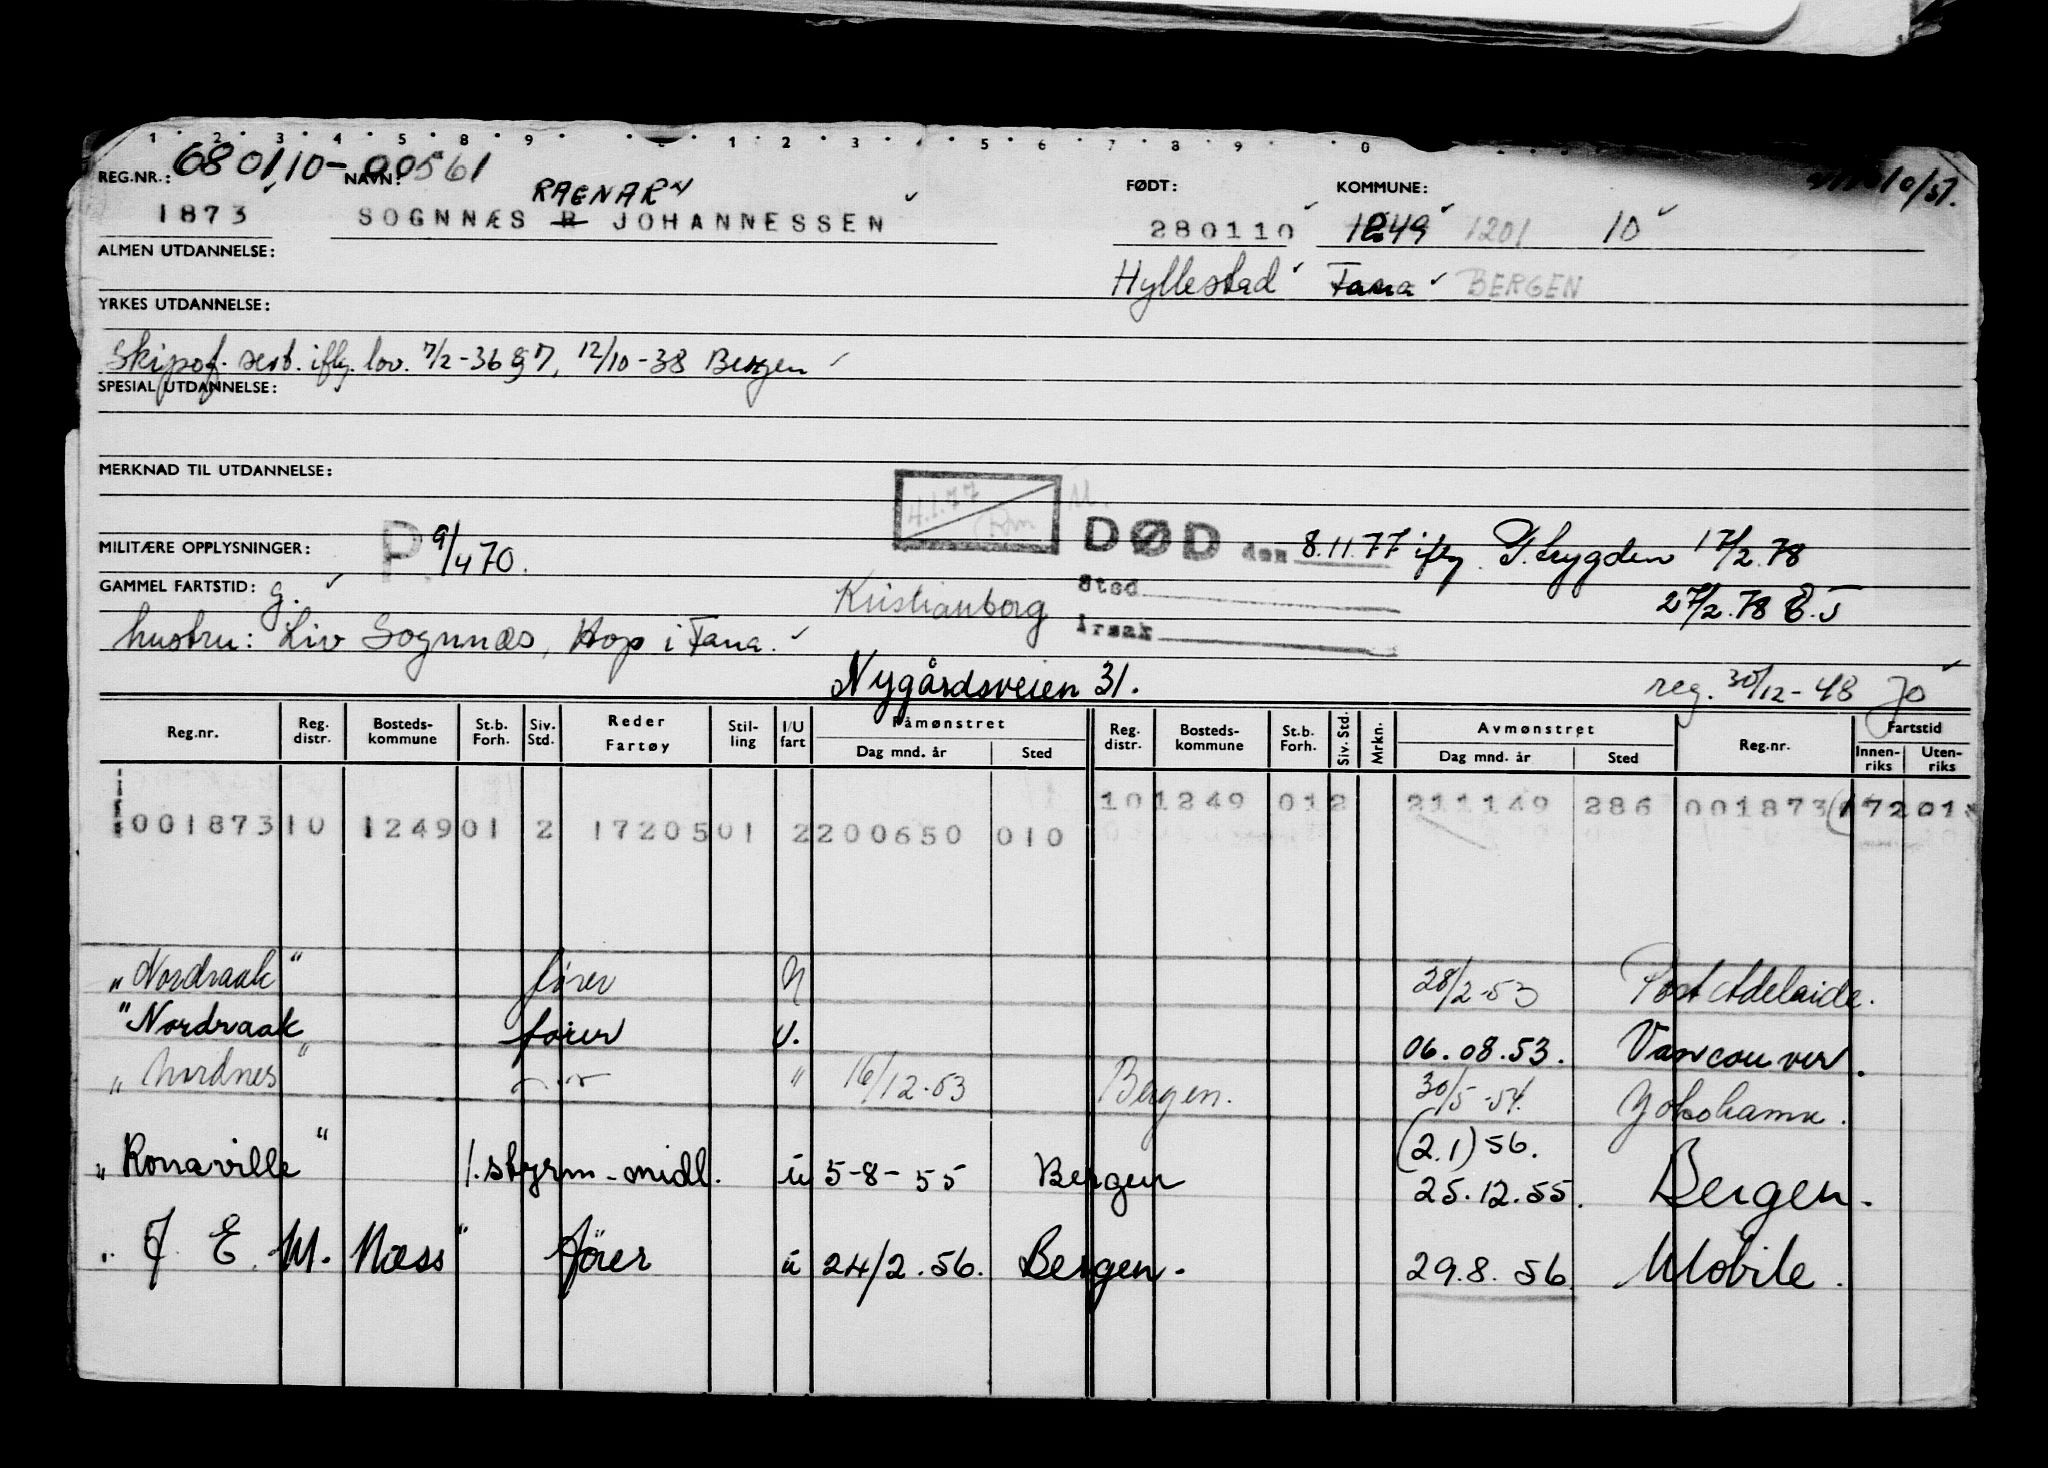 1 2 3 4 5 8 9 1 2 3 4 5 6 7 8 9 0
REG.NR.: 680110-00561 NAVN: FØDT: KOMMUNE:
RAGNAR
1873 SOGNNÆS R JOHANNESSEN 280110 1249 1201 10
ALMEN UTDANNELSE: Hyllestad Fana BERGEN
YRKES UTDANNELSE:
Skipsf. sert. iflg. lov. 7/2-36 §7, 12/10-38 Bergen
SPESIAL UTDANNELSE:
MERKNAD TIL UTDANNELSE:
4.1.77
MILITÆRE OPPLYSNINGER: P. 9/4 70. DØD den 8.11.77 iflg. Trygden 17/2.78
GAMMEL FARTSTID: g. Kristianborg Sted 27/2.78
hustru: Liv Sognnæs, Hop i Fana. Årsak
Nygårdsveien 31. reg. 30/12-48 Jo
Reg.nr. Reg. distr. Bosteds-kommune St.b. Forh. Siv. Std. Reder Fartøy Stil-ling I/U fart Påmønstret Dag mnd. år Sted Reg. distr. Bosteds-kommune St.b. Forh. Siv. Std. Mrkn. Avmønstret Dag mnd. år Sted Reg.nr. Fartstid Innen-riks Uten-riks
101249 012 211149 286 001873 17201
00187310 124901 2 1720501 2200650 010
"Nordraak" fører U 28/2-53 Port Adelaide.
"Nordraak fører U. 06.08.53. Vancouver.
"Nordnes" " 16/12-53 Bergen. 30/5-54. Yokohama.
(2.1) 56.
"Ronaville" 1. styrm-midl. u 5-8-55 Bergen 25.12.55. Bergen.
"J. E. M. Næss" fører u 24/2.56. Bergen. 29.8.56 Mobile.